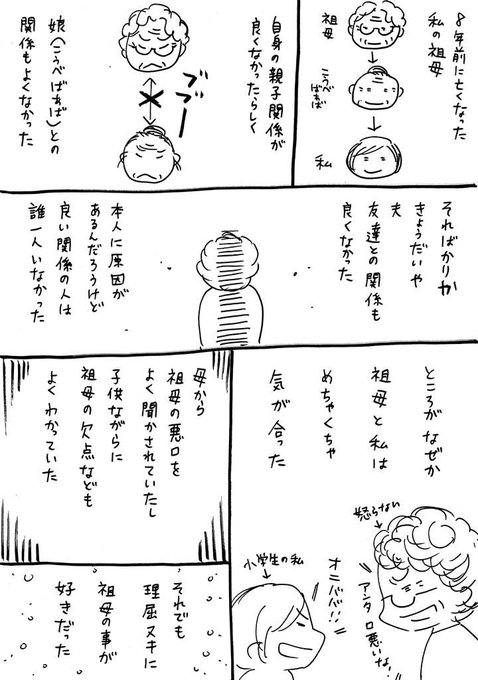 8年前に亡くなった
私の祖母
祖母
こうべ
ばぁば
私
自身の親子関係が
良くなかったらしく
ブブー
娘(こうべばぁば)との
関係もよくなかった
そればかりか
夫
きょうだいや
友達との関係も
良くなかった
本人に原因が
あるんだろうけど
良い関係の人は
誰一人いなかった
ところがなぜか
祖母と私は
めちゃくちゃ
気が合った
怒らない
アンタ口悪いな!
オニババ!!
小学生の私
母から
祖母の悪口を
よく聞かされていたし
子供ながらに
祖母の欠点なども
よくわかっていた
それでも
理屈ヌキに
祖母の事が
好きだった